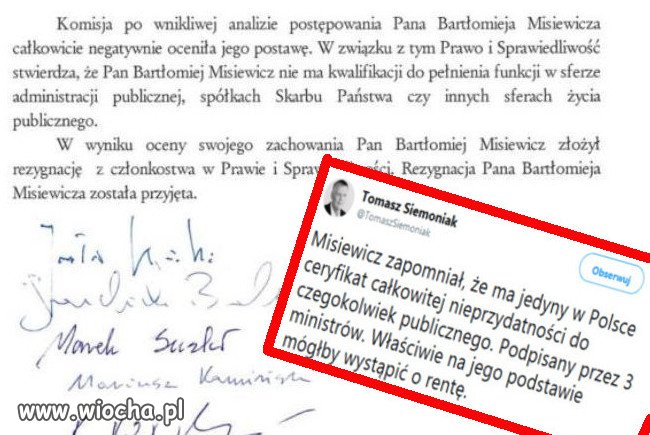 Komisja po wnikliwej analizie postępowania Pana Bartłomieja Misiewicza
całkowicie negatywnie oceniła jego postawę. W związku z tym Prawo i Sprawiedliwość
stwierdza, że Pan Bartłomiej Misiewicz nie ma kwalifikacji do pełnienia funkcji w sferze
administracji publicznej, spółkach Skarbu Państwa czy innych sferach życia
publicznego.
W wyniku oceny swojego zachowania Pan Bartłomiej Misiewicz złożył
rezygnację z członkostwa w Prawie i Spraw ości. Rezygnacja Pana Bartłomieja
Misiewicza została przyjęta.
Tomasz Siemoniak
@TomaszSiemoniak
Obserwuj
Misiewicz zapomniał, że ma jedyny w Polsce
ceryfikat całkowitej nieprzydatności do
czegokolwiek publicznego. Podpisany przez 3
ministrów. Właściwie na jego podstawie
mógłby wystąpić o rentę.
Marek Suski
Mariusz Kamiński
www.wiocha.pl